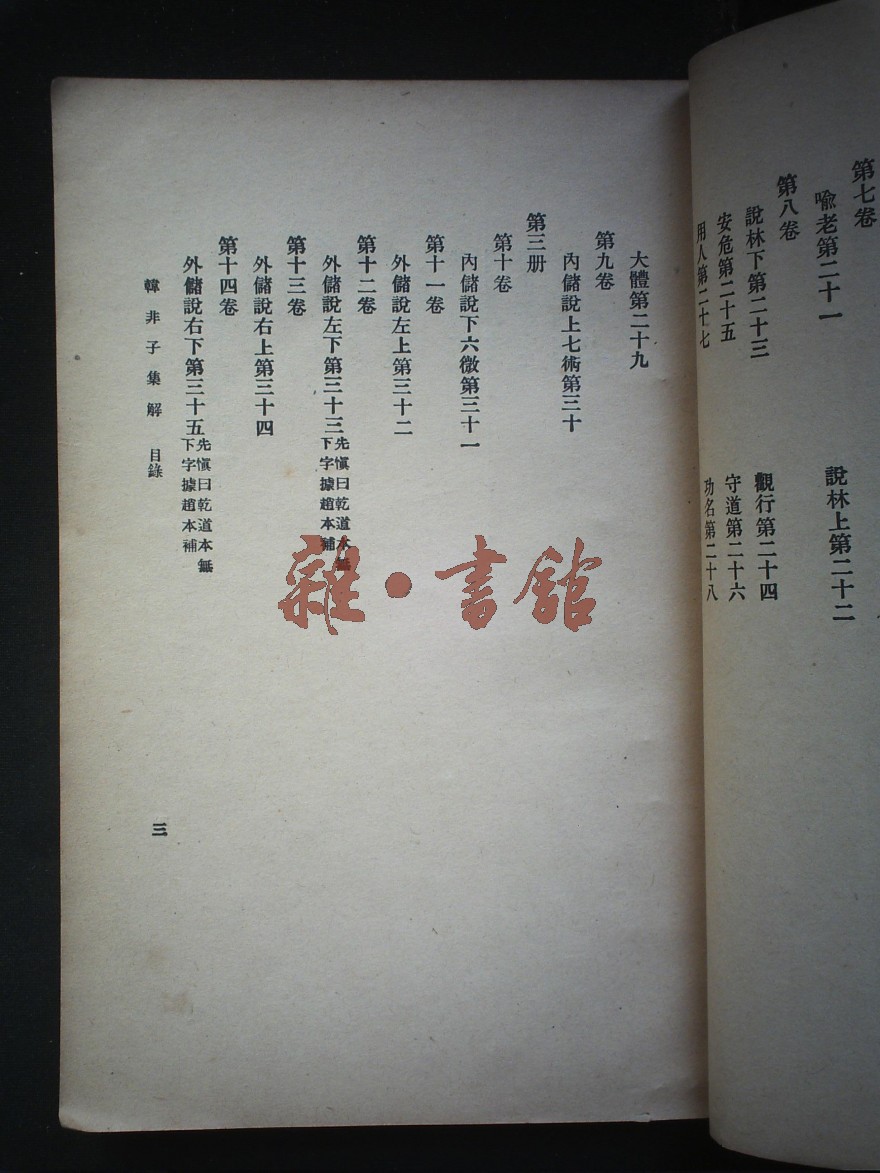 第七卷
喩老第二十一
說林上第二十二
第八卷
說林下第二十三
觀行第二十四
安危第二十五
守道第二十六
用人第二十七
功名第二十八
大體第二十九
第九卷
內儲說上七術第三十
第三册
第十卷
內儲說下六微第三十一
第十一卷
外儲說左上第三十二
第十二卷
外儲說左下第三十三
先愼曰乾道本無
下字據趙本補
第十三卷
外儲說右上第三十四
第十四卷
外儲說右下第三十五
先愼曰乾道本無
下字據趙本補
韓非子集解 目錄
三
雜·書館